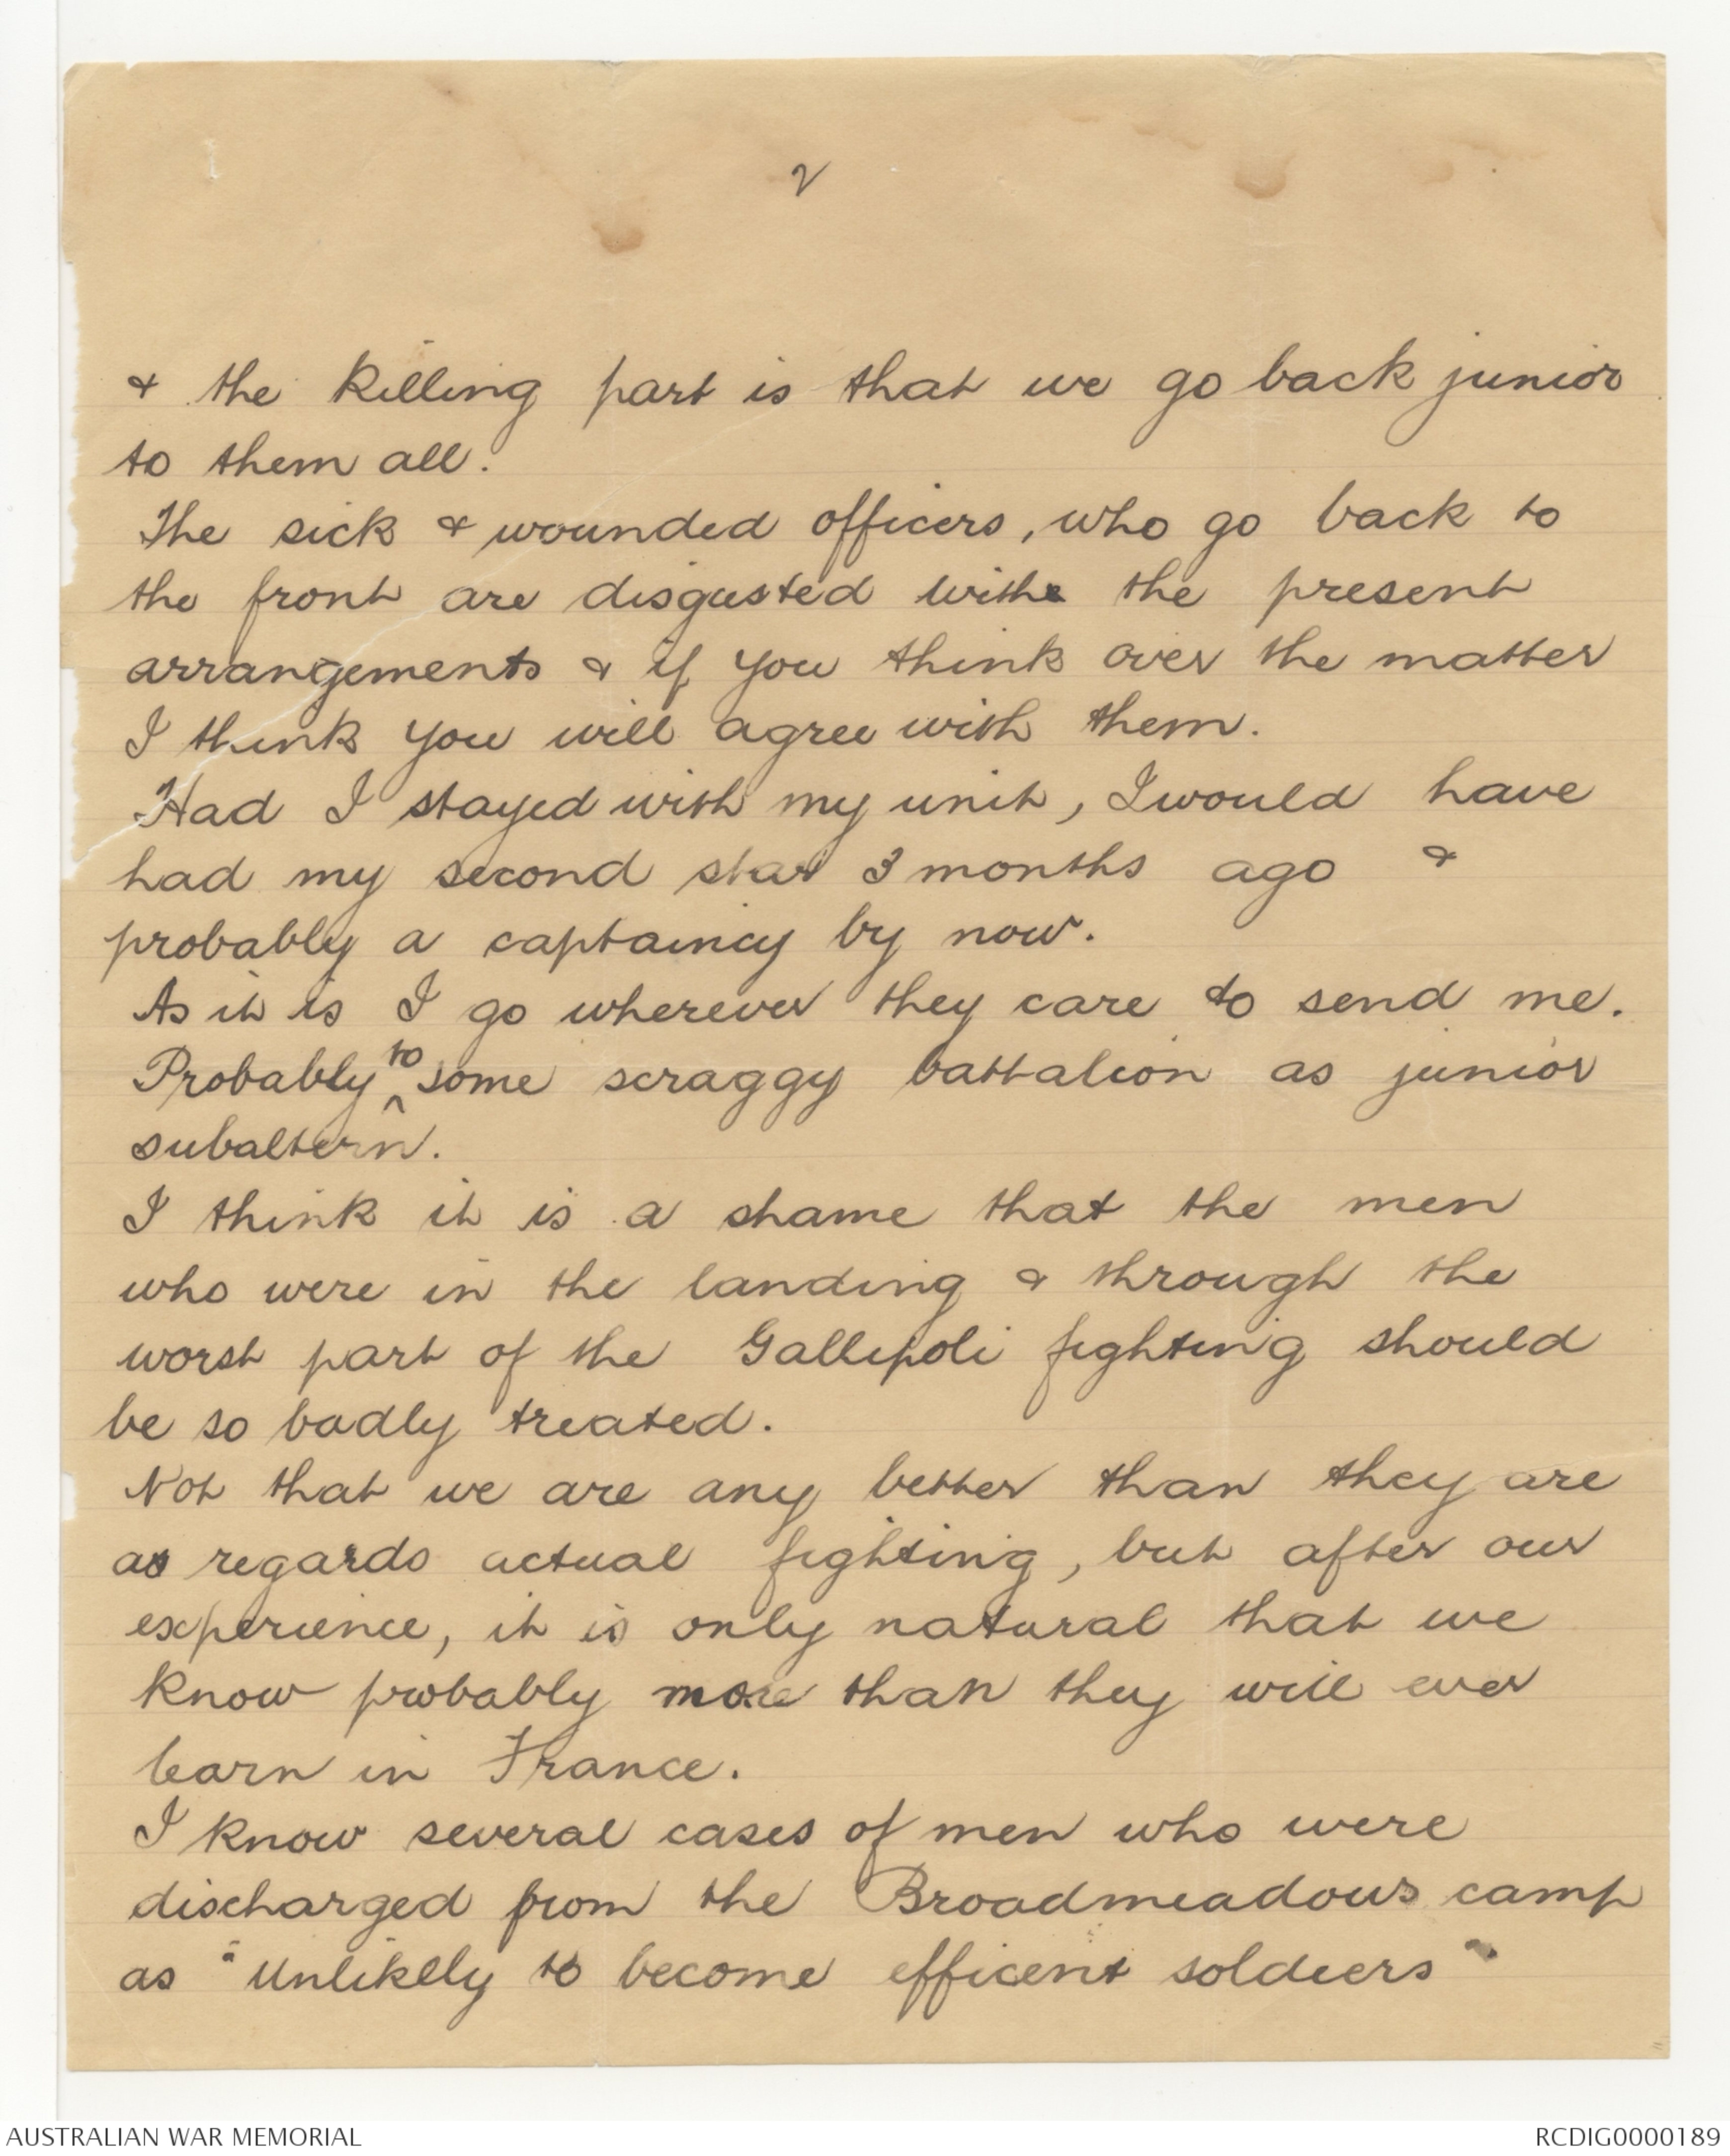 2
& the killing part is that we go back junior
to them all.
The sick & wounded officers, who go back to
the front are disgusted with the present
arrangements & if you think over the matter
I think you will agree with them.
Had I stayed with my unit, I would have
had my second star 3 months ago &
probably a captaincy by now.
As it is I go wherever they care to send me.
Probably to some scraggy battalion as junior
subaltern.
I think it is a shame that the men
who were in the landing & through the
worst part of the Gallipoli fighting should
be so badly treated.
Not that we are any better than they are
as regards actual fighting, but after our
experience, it is only natural that we
know probably more than they will ever
learn in France.
I know several cases of men who were
discharged from the Broadmeadows camp
as "Unlikely to become efficent soldiers"
AUSTRALIAN WAR MEMORIAL
RCDIG0000189